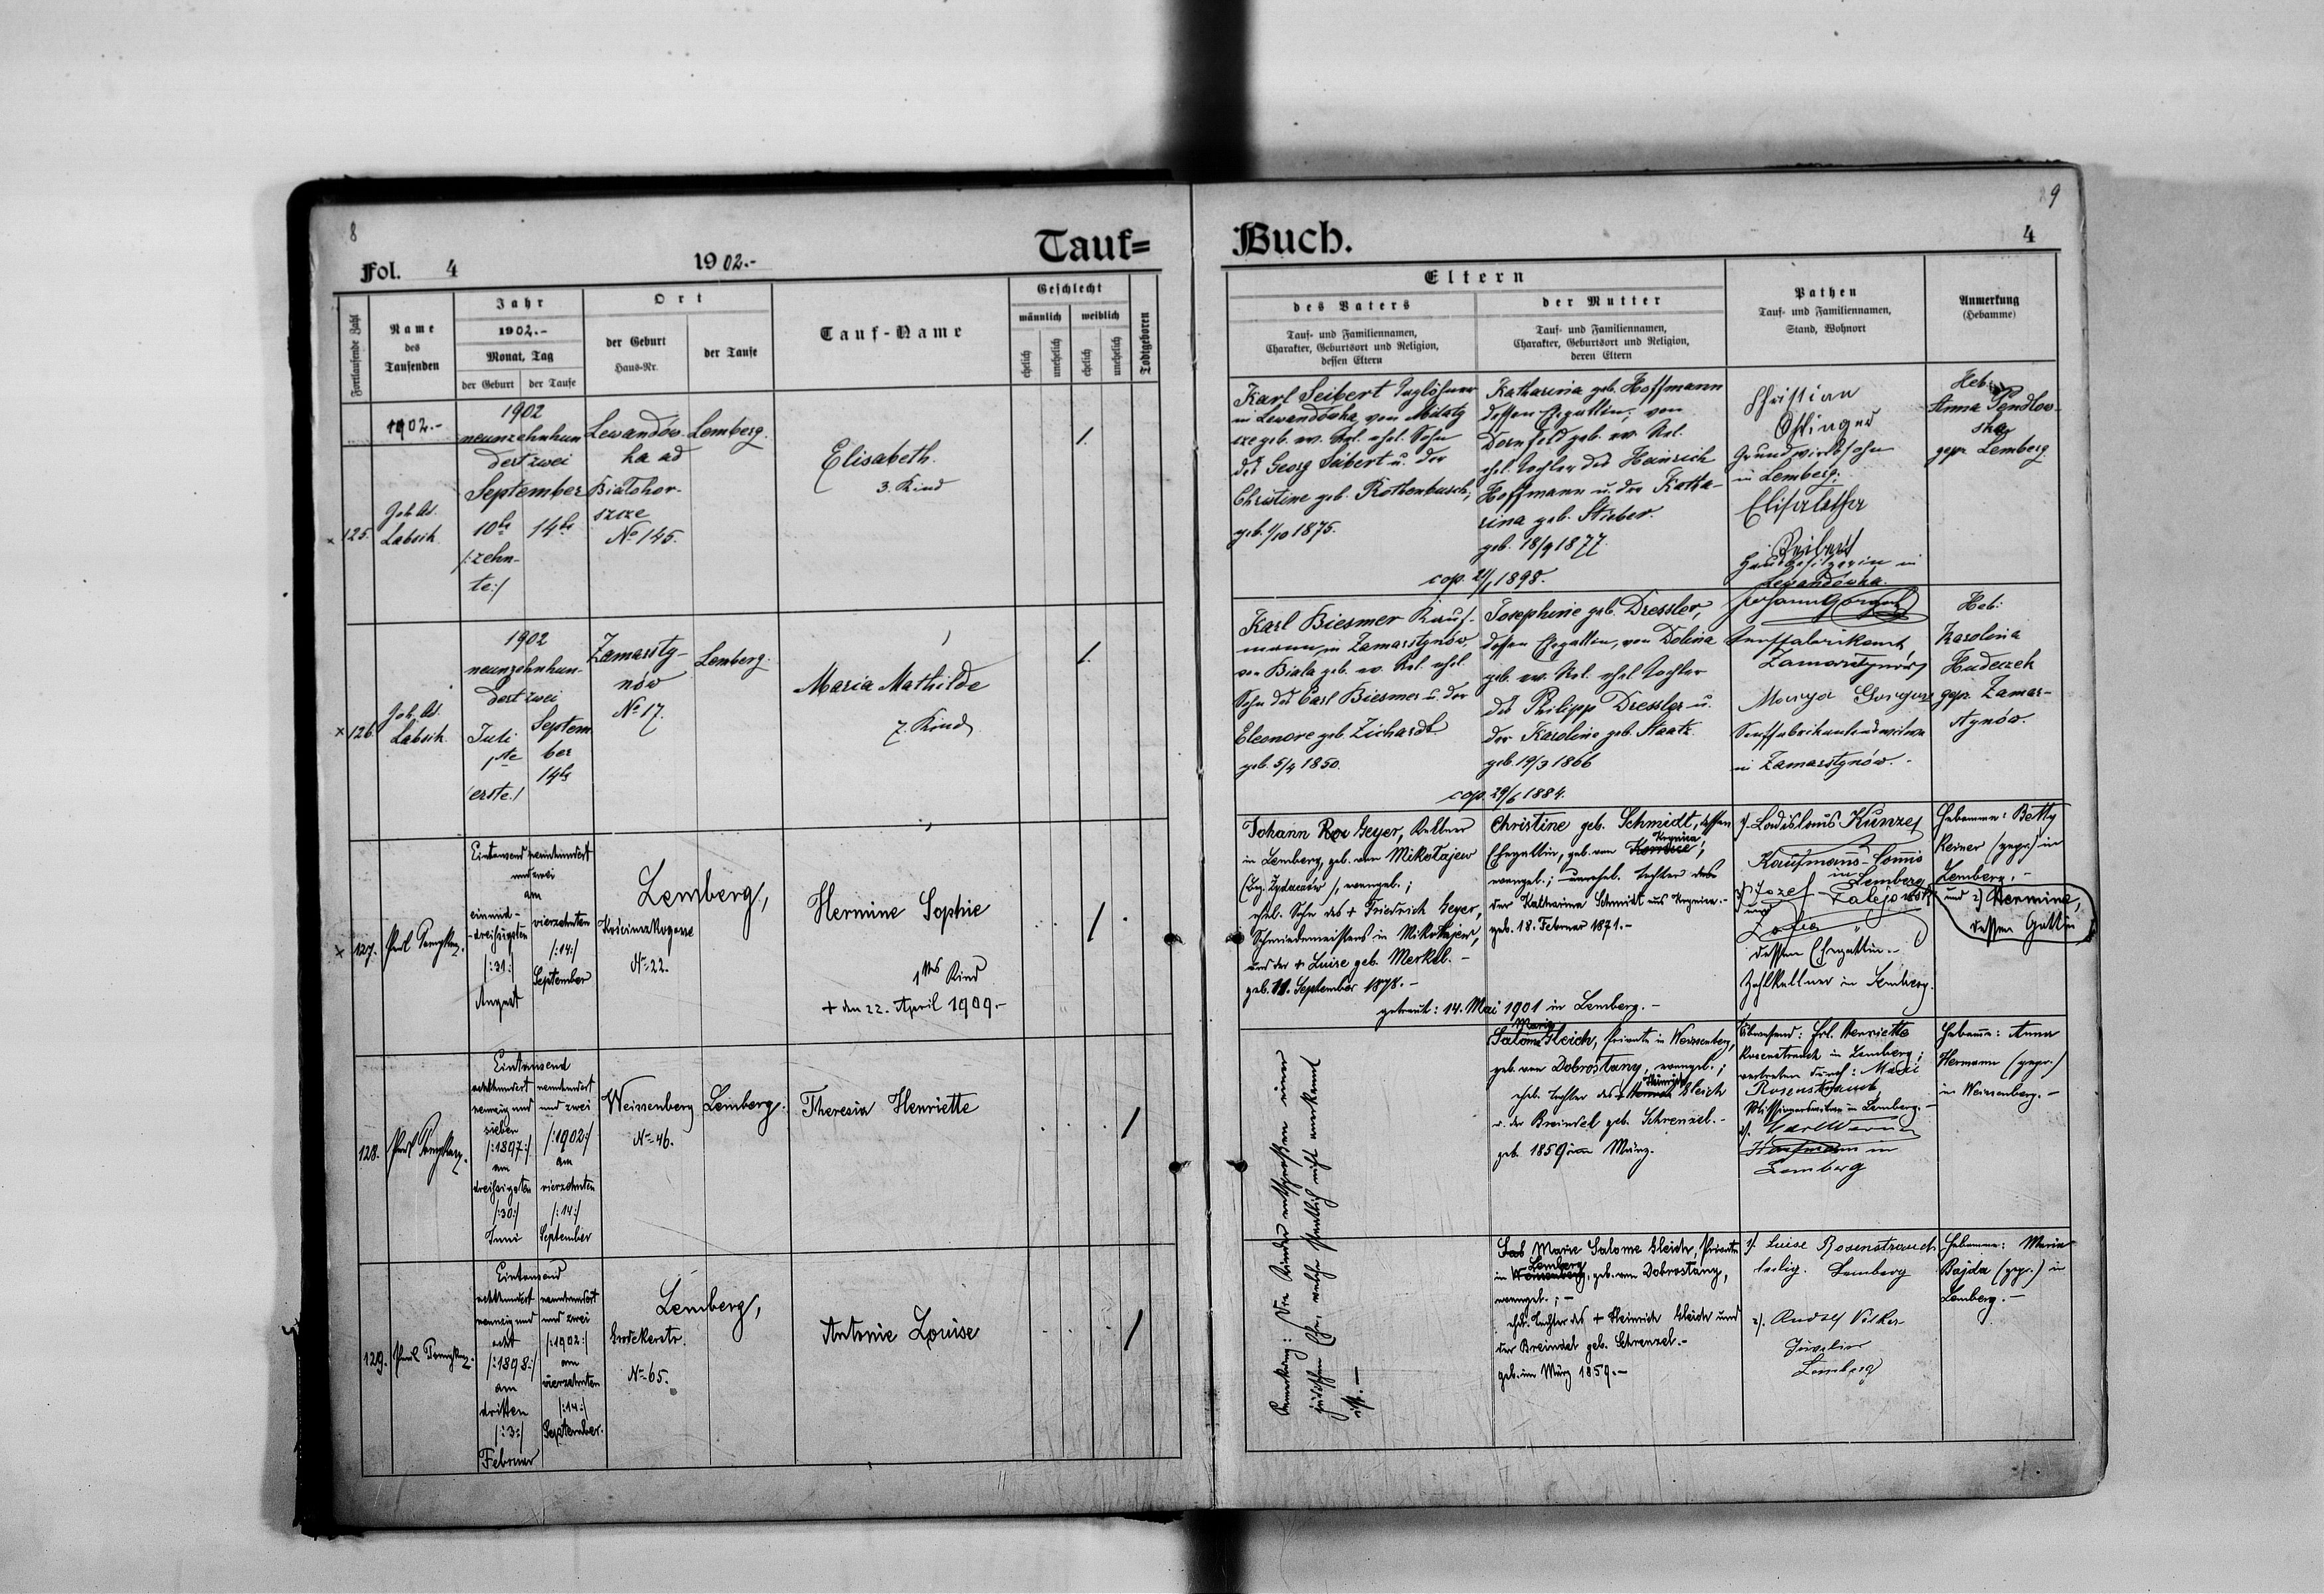 8
Fol. 4
1902.-
Tauf=
Fortlaufende Zahl
Name
des
Taufenden
Jahr
1902.-
Monat, Tag
der Geburt
der Taufe
Ort
der Geburt
Haus-Nr.
der Taufe
Tauf-Name
Geschlecht
männlich
weiblich
ehelich
unehelich
ehelich
unehelich
Todtgeboren
1902.-
125.
Labsik
1902
neunzehnhun
dert zwei
September
10te
14te
/:zehn-
te:/
Lewandów-
ka ad
Białohor-
szcze
No 145.
Lemberg.
Elisabeth.
3. Kind
1.
126.
Labsik
1902
neunzehnhun-
dert zwei
Juli
1te
erste./
Septem
ber
14te
Zamarsty-
nów
No 17.
Lemberg.
Maria Mathilde
7. Kind
1.
127.
Eintausend neunhundert
und zwei
am
einund-
dreißigsten
/:31:/
August
vierzehnten
/:14:/
September
Lemberg,
No 22.
Hermine Sophie
1tes Kind
+ den 22. April 1909.-
1
128.
Eintausend
achthundert
neunzig und
sieben
/:1897:/
am
dreißigsten
/:30:/
Juni
neunhundert
und zwei
/:1902:/
am
vierzehnten
/:14:/
September
Weissenberg
No 46.
Lemberg.
Theresia Henriette
1
129.
Eintausend
achthundert
neunzig und
acht
/:1898:/
am
dritten
/:3:/
Februar
neunhundert
und zwei
/:1902:/
am
vierzehnten
/:14:/
September.
Lemberg,
Grodekerstr.
No 65.
Antonie Louise
1
9
Buch.
4
Eltern
des Vaters
Tauf- und Familiennamen,
Charakter, Geburtsort und Religion,
dessen Eltern
der Mutter
Tauf- und Familiennamen,
Charakter, Geburtsort und Religion,
deren Eltern
Pathen
Tauf- und Familiennamen,
Stand, Wohnort
Anmerkung
(Hebamme)
Karl Seibert Taglöhner
in Lewandówka, von
geb. ev. Rel. ehel. Sohn
des Georg Seibert u. der
Christine geb. Rothenbusch,
geb. 1/10 1875.
Katharina geb. Hoffmann
dessen Ehegattin, von
Dornfeld geb. ev. Rel.
ehel. Tochter des Heinrich
Hoffmann u. der Katha-
rina geb. Stieber.
geb. 18/9 1877.
cop. 1898.
Christian
Grundwirthsohn
in Lemberg.
Elisabetha
Seibert
Hausbesitzerin in
Lewandówka.
Heb.
Anna Pendlow-
ska
gepr. Lemberg.
Karl Biesmer Kauf-
mann in Zamarstynów,
von Biala geb. ev. Rel. ehel.
Sohn des Carl Biesmer u. der
Eleonore geb. Zichardt
geb. 5/4 1850.
Josephine geb. Dressler,
dessen Ehegattin, von Dolina
geb. ev. Rel. ehel. Tochter
des Philipp Dressler u.
der Karoline geb. Staatz.
geb. 19/3 1866
cop. 29/6 1884.
Johann
Senffabrikant
Zamarstynów
Marya Gorgon
Senffabrikantenswitwe
in Zamarstynów.-
Heb:
Karolina
Hudeczek
gepr. Zamar-
stynów.
Johann Geyer, Kellner
in Lemberg, geb. von Mikołajew
(Bez. Żydaczów), evangel.;
ehel. Sohn des + Friedrich Geyer,
Schmiedemeisters in Mikołajew,
und der + Luise geb. Merkel.-
geb. 11. September 1878.-
Christine geb. Schmidt, dessen
Krynica
Ehegattin, geb. von
evangel.; unehel. Tochter
der Katharina Schmidt aus Krynica.-
geb. 18. Februar 1871.-
getraut: 14. Mai 1901 in Lemberg.-
1. Ladislaus Kunze,
Kaufmanns-Commis
in
Lemberg
Jozef
und
Zofia
dessen Ehegattin.
Zahlkellner in Lemberg.
Hebamme: Betty
Reiner (gepr.) in
Lemberg.-
und 2) Hermine,
dessen Gattin
Maria
Salome Gleich, Private in Weissenberg,
geb. von Dobrostany, evangel.;
Heinrich
ehel. Tochter des Gleich
u. der Breindel geb. Schrenzel.-
geb. 1859 im März.
Abwesend: Frl. Henriette
Rosenstrauch in Lemberg;
vertreten durch: Marie
Rosenstrauch,
in Lemberg.-
2). Karl
Kaufmann in
Lemberg
Hebamme: Anna
Hermann (gepr.)
in Weissenberg.-
Marie Salome Gleich, Private
Lemberg
in Weissenberg, geb. von Dobrostany,
evangel.;-
ehel. Tochter des + Heinrich Gleich und
der Breindel geb. Schrenzel.-
geb. im März 1859.-
1). Luise Rosenstrauch
ledig. Lemberg
2). Rudolf Völker
Juwelier
Lemberg
Hebamme: Maria
Bajda (gepr.) in
Lemberg.-
Anmerkung: Die Kinder entsprossen einer
jüdischen Ehe, welche staatlich nicht anerkannt
ist.-